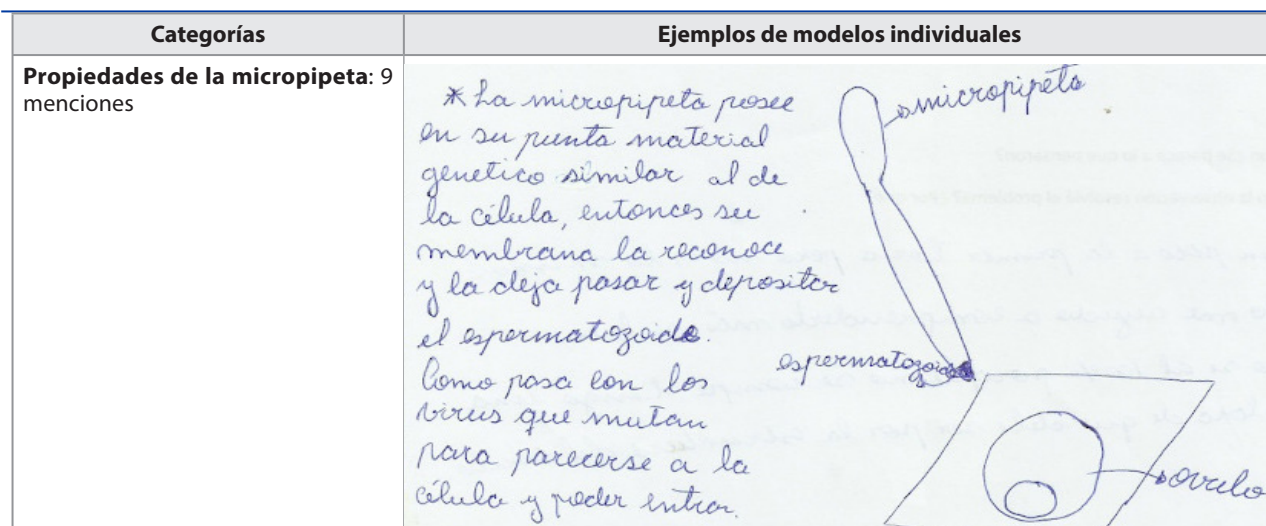 Categorías
Ejemplos de modelos individuales
Propiedades de la micropipeta: 9
menciones
* La micropipeta posee
en su punta material
genetico similar al de
la célula, entonces su
membrana la reconoce
y la deja pasar y depositar
el espermatozoide.
Como pasa con los
virus que mutan
para parecerse a la
célula y poder entrar.
micropipeta
espermatozoide
ovulo